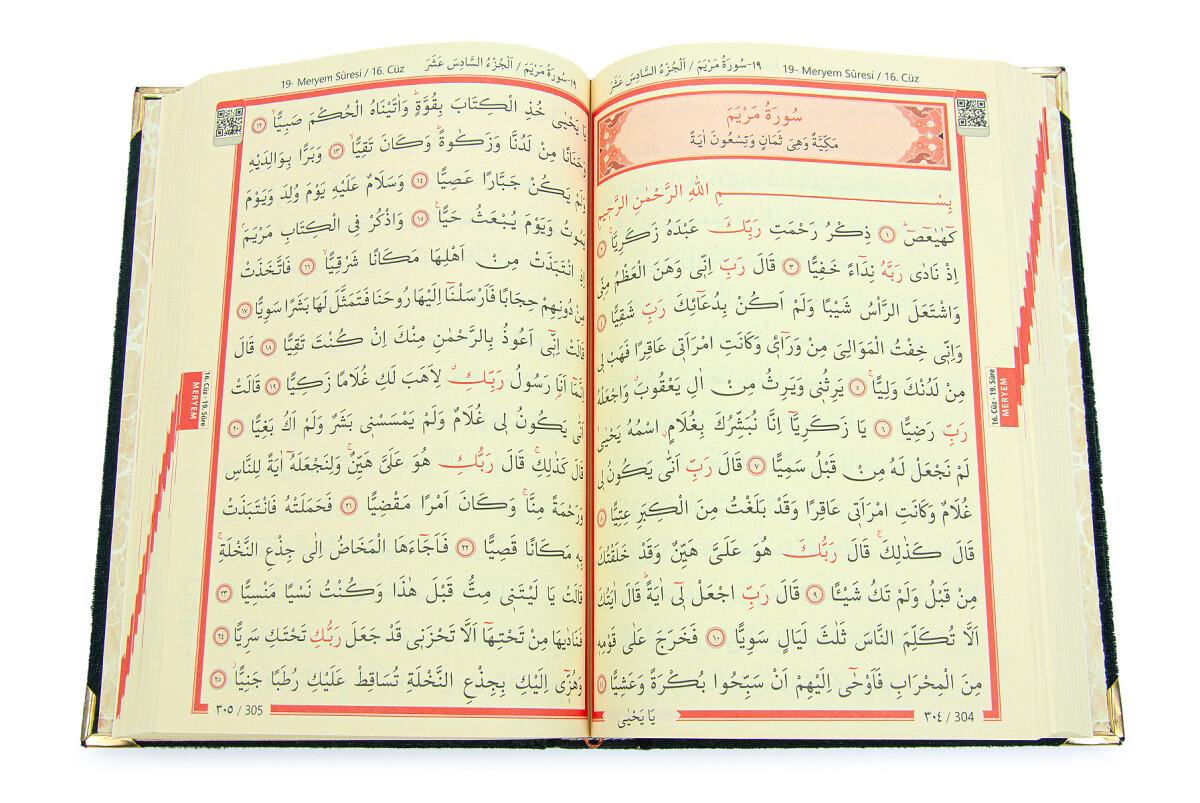 ١٩-سُورَةُ مَرْيَمَ / اَلْجُزْءُ السَّادِسَ عَشَرَ
19- Meryem Sûresi / 16. Cüz
سُورَةُ مَرْيَمَ
مَكِّيَّةٌ وَهِىَ ثَمَانٍ وَتِسْعُونَ اٰيَةً
بِسْــــــمِ اللّٰهِ الرَّحْمٰنِ الرَّحِيمِ
كٓهٰيٰعٓصٓ ۜ ﴿١﴾ ذِكْرُ رَحْمَتِ رَبِّكَ عَبْدَهُ زَكَرِيَّا ۚ ﴿٢﴾
اِذْ نَادٰى رَبَّهُ نِدَٓاءً خَفِيًّا ﴿٣﴾ قَالَ رَبِّ اِنّٖى وَهَنَ الْعَظْمُ مِنّٖى
وَاشْتَعَلَ الرَّأْسُ شَيْبًا وَلَمْ اَكُنْ بِدُعَٓائِكَ رَبِّ شَقِيًّا ﴿٤﴾
وَاِنّٖى خِفْتُ الْمَوَالِىَ مِنْ وَرَٓاءٖى وَكَانَتِ امْرَاَتٖى عَاقِرًا فَهَبْ لٖى
مِنْ لَدُنْكَ وَلِيًّا ۙ ﴿٥﴾ يَرِثُنٖى وَيَرِثُ مِنْ اٰلِ يَعْقُوبَ وَاجْعَلْهُ
رَبِّ رَضِيًّا ﴿٦﴾ يَا زَكَرِيَّٓا اِنَّا نُبَشِّرُكَ بِغُلَامٍ اسْمُهُ يَحْيٰى
لَمْ نَجْعَلْ لَهُ مِنْ قَبْلُ سَمِيًّا ﴿٧﴾ قَالَ رَبِّ اَنّٰى يَكُونُ لٖى
غُلَامٌ وَكَانَتِ امْرَاَتٖى عَاقِرًا وَقَدْ بَلَغْتُ مِنَ الْكِبَرِ عِتِيًّا ﴿٨﴾
قَالَ كَذٰلِكَ ۚ قَالَ رَبُّكَ هُوَ عَلَىَّ هَيِّنٌ وَقَدْ خَلَقْتُكَ
مِنْ قَبْلُ وَلَمْ تَكُ شَيْـًٔا ﴿٩﴾ قَالَ رَبِّ اجْعَلْ لٖٓى اٰيَةً ۜ قَالَ اٰيَتُكَ
اَلَّا تُكَلِّمَ النَّاسَ ثَلٰثَ لَيَالٍ سَوِيًّا ﴿١٠﴾ فَخَرَجَ عَلٰى قَوْمِهٖ
مِنَ الْمِحْرَابِ فَاَوْحٰٓى اِلَيْهِمْ اَنْ سَبِّحُوا بُكْرَةً وَعَشِيًّا ﴿١١﴾
يَا يَحْيٰى
٣٠٤ / 304
16. Cüz - 19. Sûre
MERYEM
١٩-سُورَةُ مَرْيَمَ / اَلْجُزْءُ السَّادِسَ عَشَرَ
19- Meryem Sûresi / 16. Cüz
يَا يَحْيٰى خُذِ الْكِتَابَ بِقُوَّةٍ ۜ وَاٰتَيْنَاهُ الْحُكْمَ صَبِيًّا ۙ ﴿١٢﴾
وَحَنَانًا مِنْ لَدُنَّا وَزَكٰوةً ۜ وَكَانَ تَقِيًّا ۙ ﴿١٣﴾ وَبَرًّا بِوَالِدَيْهِ
وَلَمْ يَكُنْ جَبَّارًا عَصِيًّا ﴿١٤﴾ وَسَلَامٌ عَلَيْهِ يَوْمَ وُلِدَ وَيَوْمَ
يَمُوتُ وَيَوْمَ يُبْعَثُ حَيًّا ۟ ﴿١٥﴾ وَاذْكُرْ فِى الْكِتَابِ مَرْيَمَ ۢ
اِذِ انْتَبَذَتْ مِنْ اَهْلِهَا مَكَانًا شَرْقِيًّا ۙ ﴿١٦﴾ فَاتَّخَذَتْ
مِنْ دُونِهِمْ حِجَابًا فَاَرْسَلْنَٓا اِلَيْهَا رُوحَنَا فَتَمَثَّلَ لَهَا بَشَرًا سَوِيًّا ﴿١٧﴾
قَالَتْ اِنّٖٓى اَعُوذُ بِالرَّحْمٰنِ مِنْكَ اِنْ كُنْتَ تَقِيًّا ﴿١٨﴾ قَالَ
اِنَّمَٓا اَنَا۬ رَسُولُ رَبِّكِ ۗ لِاَهَبَ لَكِ غُلَامًا زَكِيًّا ﴿١٩﴾ قَالَتْ
اَنّٰى يَكُونُ لٖى غُلَامٌ وَلَمْ يَمْسَسْنٖى بَشَرٌ وَلَمْ اَكُ بَغِيًّا ﴿٢٠﴾
قَالَ كَذٰلِكِ ۚ قَالَ رَبُّكِ هُوَ عَلَىَّ هَيِّنٌ ۚ وَلِنَجْعَلَهُٓ اٰيَةً لِلنَّاسِ
وَرَحْمَةً مِنَّا ۚ وَكَانَ اَمْرًا مَقْضِيًّا ﴿٢١﴾ فَحَمَلَتْهُ فَانْتَبَذَتْ
بِهٖ مَكَانًا قَصِيًّا ﴿٢٢﴾ فَاَجَٓاءَهَا الْمَخَاضُ اِلٰى جِذْعِ النَّخْلَةِ ۚ
قَالَتْ يَا لَيْتَنٖى مِتُّ قَبْلَ هٰذَا وَكُنْتُ نَسْيًا مَنْسِيًّا ﴿٢٣﴾
فَنَادٰيهَا مِنْ تَحْتِهَٓا اَلَّا تَحْزَنٖى قَدْ جَعَلَ رَبُّكِ تَحْتَكِ سَرِيًّا ﴿٢٤﴾
وَهُزّٖٓى اِلَيْكِ بِجِذْعِ النَّخْلَةِ تُسَاقِطْ عَلَيْكِ رُطَبًا جَنِيًّا ۘ ﴿٢٥﴾
٣٠٥ / 305
16. Cüz - 19. Sûre
MERYEM